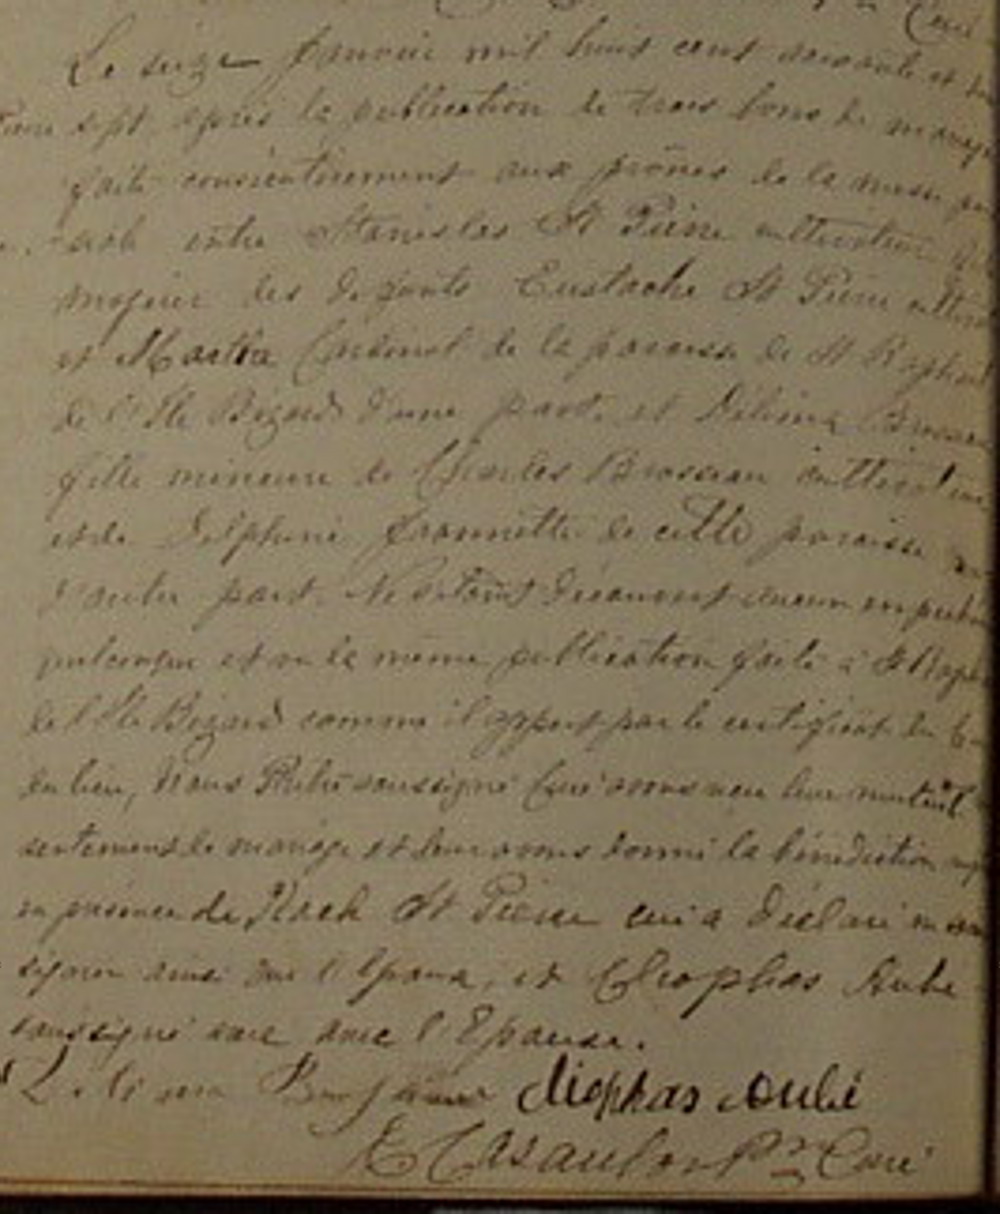 Curé
Le seize Janvier mil huit cent soixante et
sept, après la publication de trois bans de mariage
faite consécutivement aux prônes de la messe
entre Stanislas St Pierre cultivateur
majeur des défunts Eustache St Pierre
et Martha Cardinal de la paroisse de St Raphael
de l'Ile Bizard d'une part, et Délima Brosseau
fille mineure de Charles Brosseau cultivateur
et de Delphine Jeannette de cette paroisse
d'autre part. Ne s'étant découvert aucun
quelconque et vu la même publication faite à St Raph
de l'Ile Bizard comme il appert par le certificat du
du lieu, Nous Prêtre soussigné Curé avons reçu leur mutuel
sentement de mariage et leur avons donné la bénédiction
en présence de Roch St Pierre qui a déclaré ne
signer ainsi que l'Epoux, et Cléophas Aubé
soussigné avec l'Epouse.
Cléophas Aubé
Curé